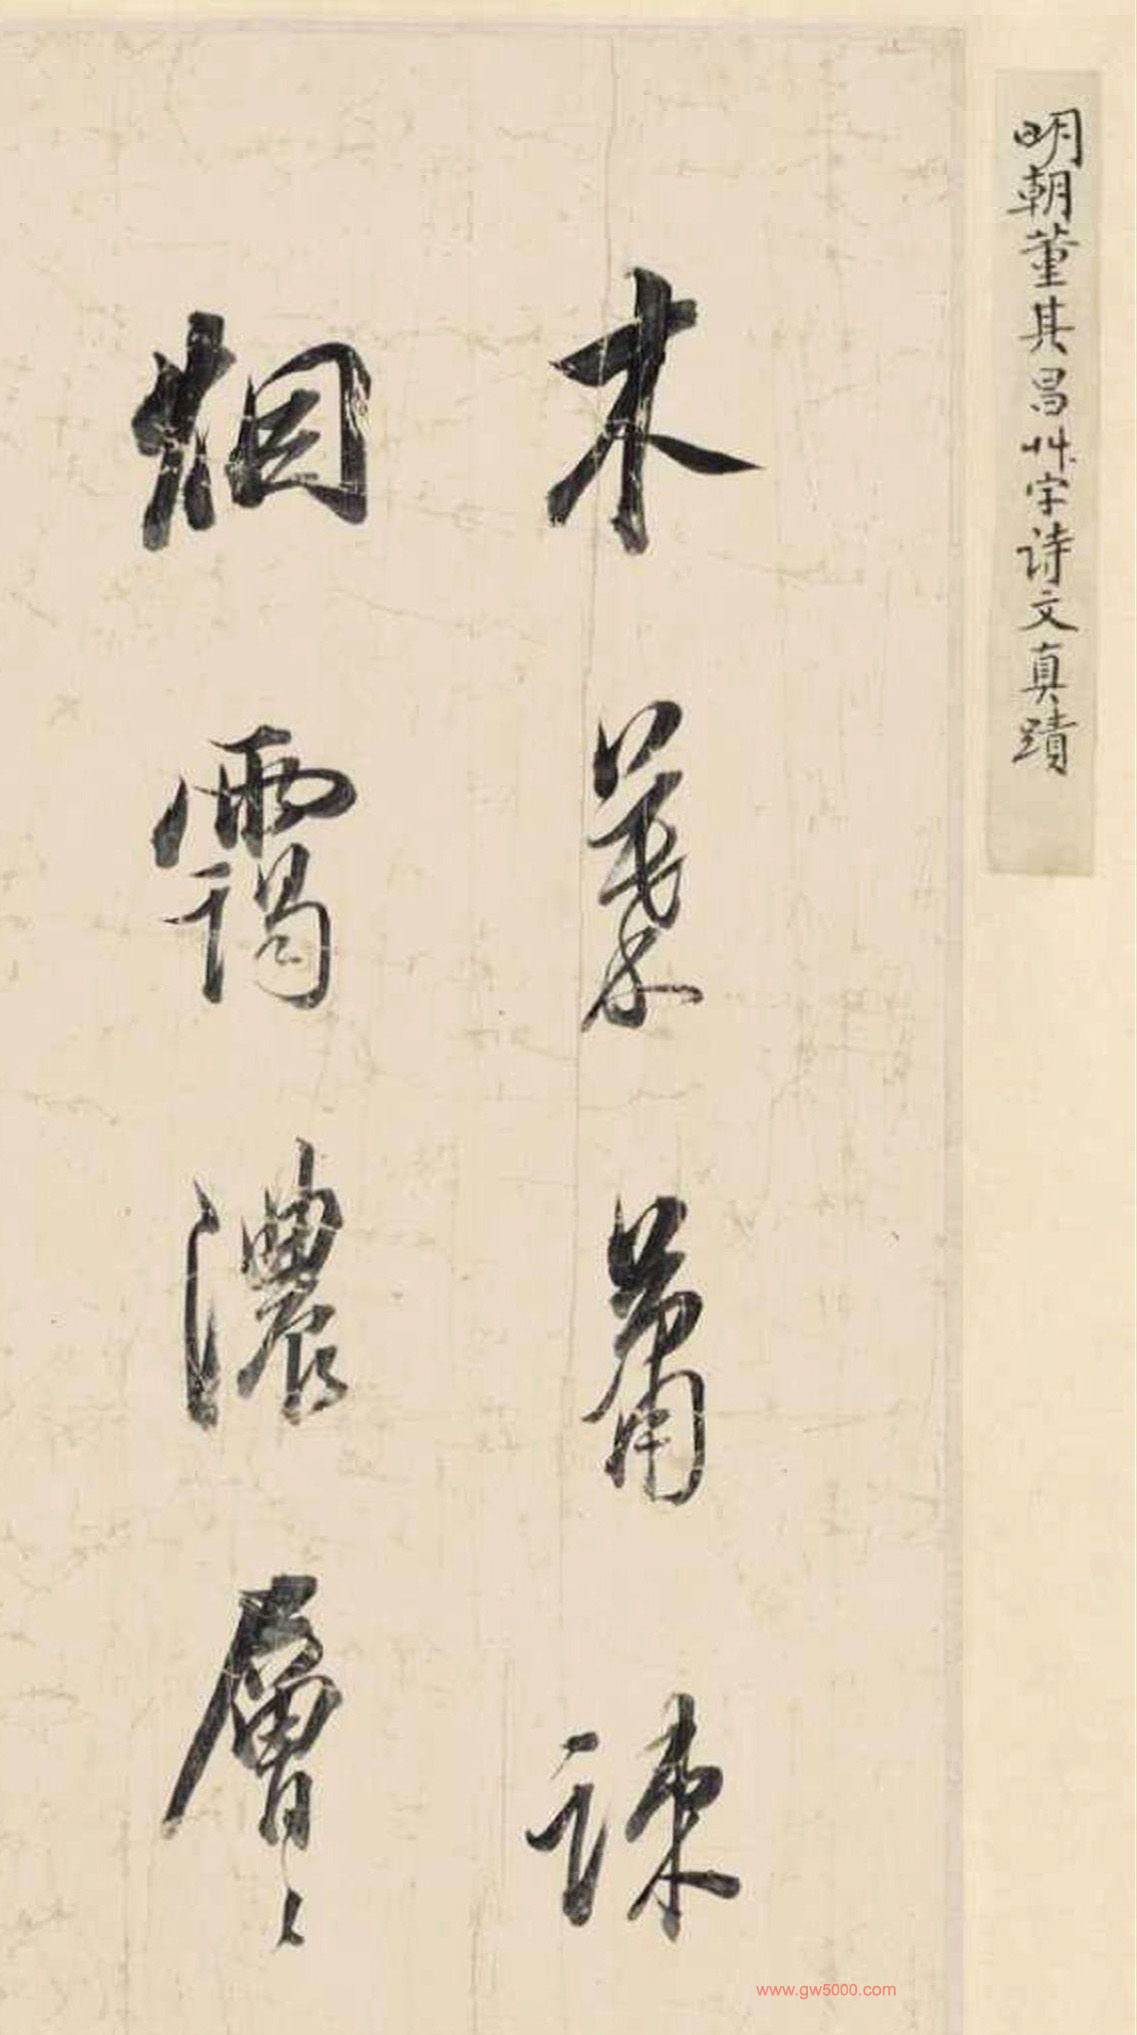 明朝董其昌艸字诗文真蹟
木葉蕭疎
烟靄濃層〻
www.gw5000.com